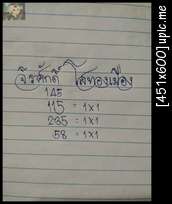 จิรศักดิ์ โสทองเมือง
145
115 = 1×1
235 = 1×1
58 = 1×1
[451x600] upic.me